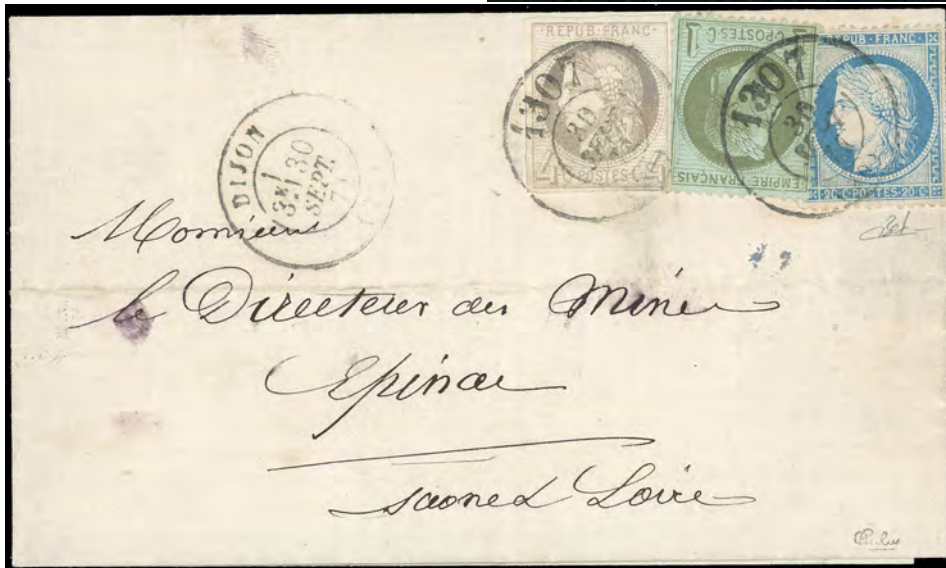 REPUB·FRANC·
4 POSTES·C 4
1 C·POSTES·C 1
EMPIRE FRANÇAIS
REPUB·FRANC·
20·C·POSTES·20·C
1307
30
SEPT.
1307
30
DIJON
1
3E/ 30
SEPT.
71
Monsieur
le Directeur des Mines
Epinac
Saone & Loire